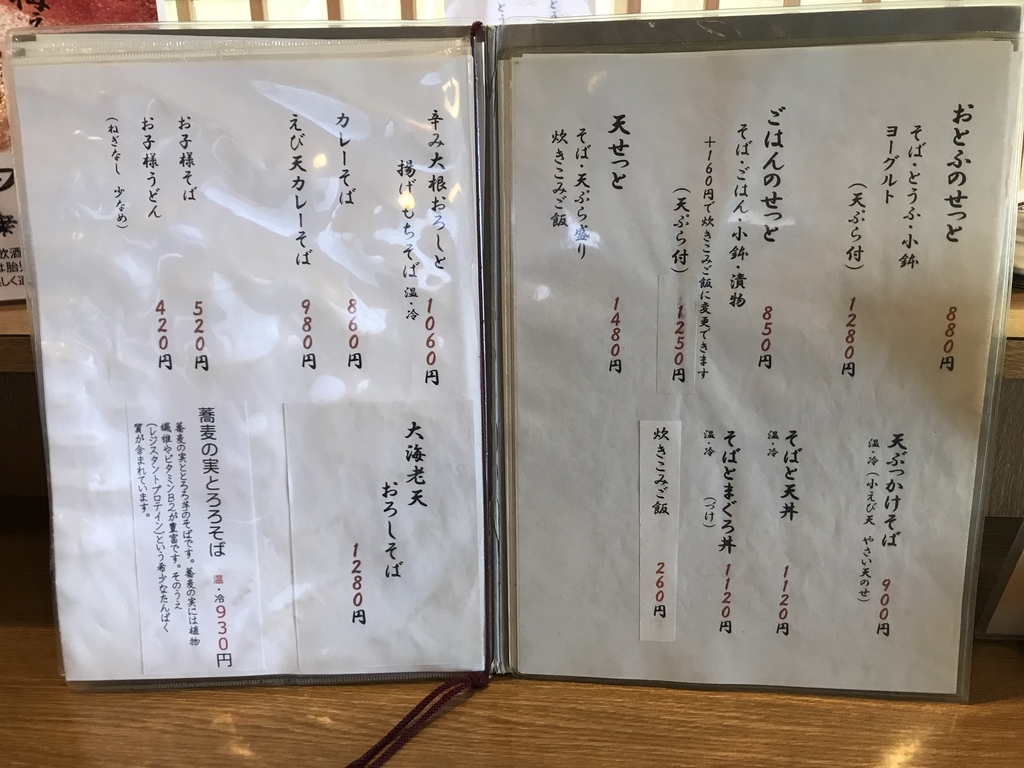 おとふのせっと
そば・とうふ・小鉢
ヨーグルト
880円
(天ぷら付)
1280円
ごはんのせっと
そば・ごはん・小鉢・漬物
850円
+160円で炊きこみご飯に変更できます
(天ぷら付)
1250円
天せっと
そば・天ぷら盛り
炊きこみご飯
1480円
天ぶっかけそば
温・冷(小えび天 やさい天のせ)
900円
そばと天丼
温・冷
1120円
そばとまぐろ丼
温・冷
(づけ)
1120円
炊きこみご飯
260円
辛み大根おろしと
揚げもちそば 温・冷
1060円
カレーそば
860円
えび天カレーそば
980円
お子様そば
520円
お子様うどん
(ねぎなし 少なめ)
420円
大海老天
おろしそば
1280円
蕎麦の実とろろそば 温・冷 930円
蕎麦の実ととろろ芋のそばです。蕎麦の実には植物
繊維やビタミンB2が豊富です。そのうえ
(レジスタントプロテイン)という希少なたんぱく
質が含まれています。
飲酒